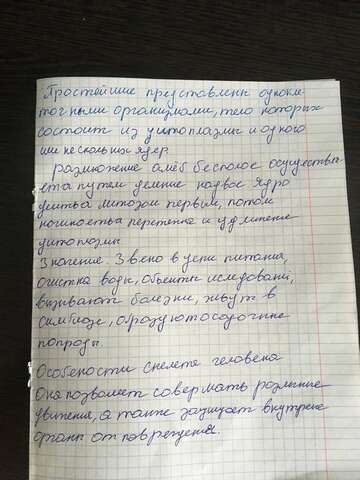 Простейшие представлены однокле
точными организмами, тело которых
состоит из цитоплазмы и одного
или нескольких ядер
Размножение амёб бесполое осуществля
ета путем деление надвое ядро
делитьа митозом первым, потом
перетенка и удлинение
цитоплазмы
Значение. Звено в цепи питания,
очистка воды, объекты иследований,
вызывают болезни, живут в
симбиозе, образуют осадочние
породы.
Особености скелета человека
Она позваляет совермать различние
движения, а также защищает внутрене
органы от поврежения.